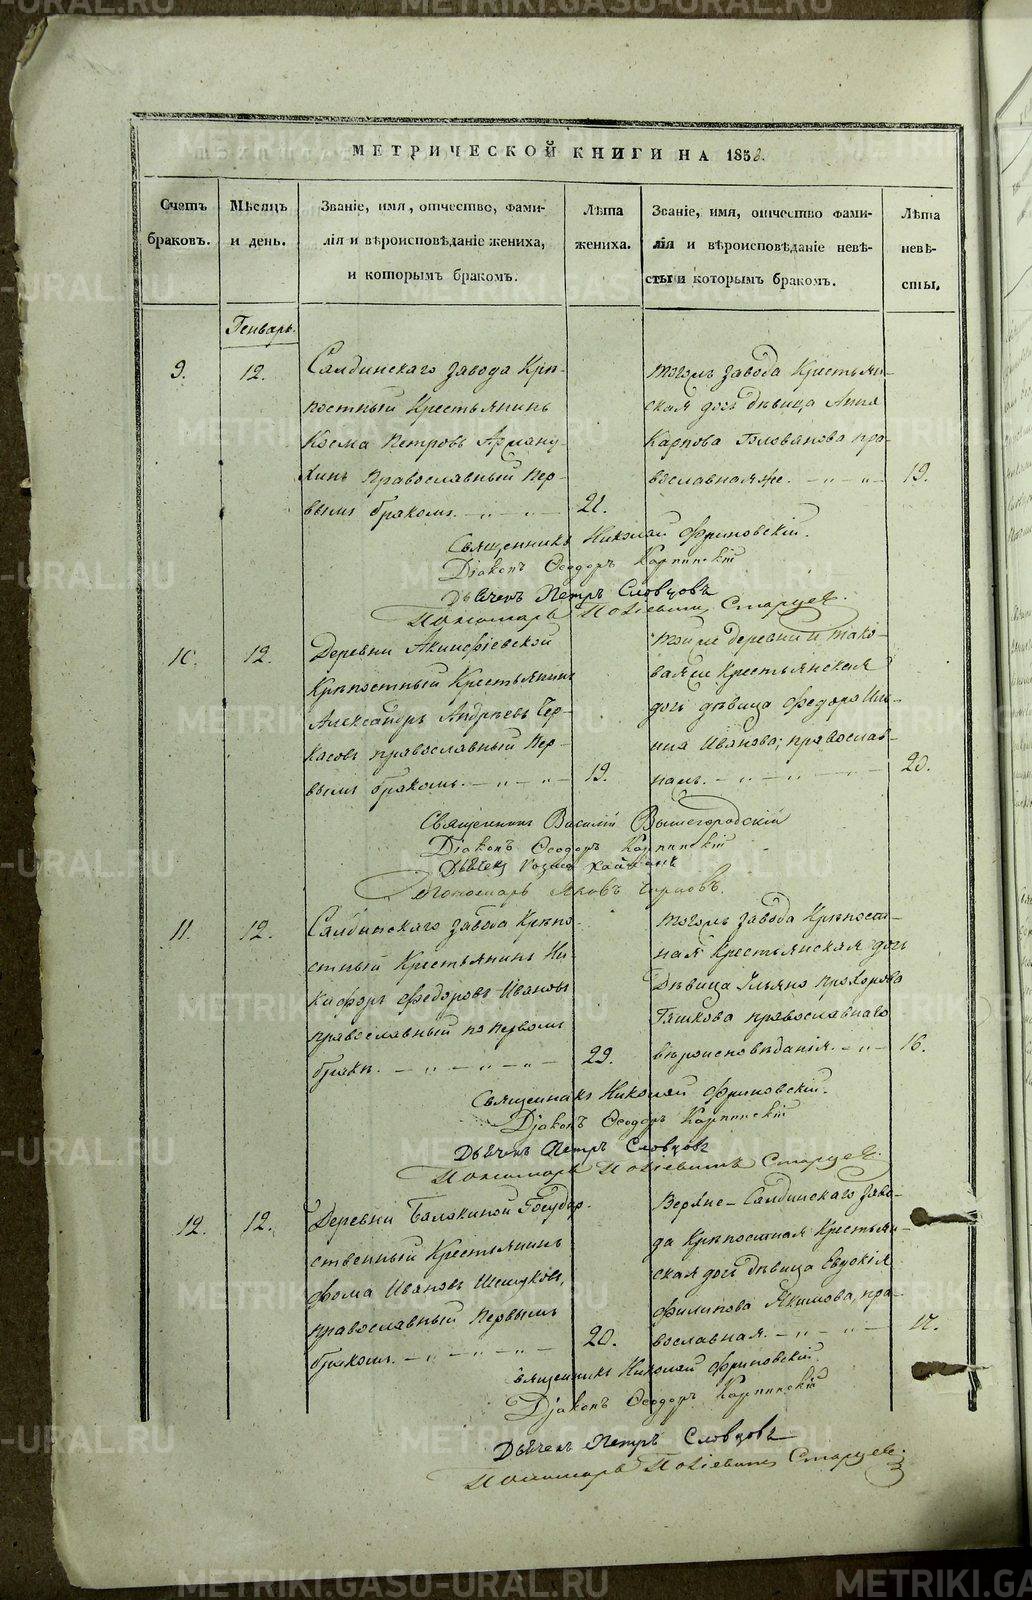 МЕТРИЧЕСКОЙ КНИГИ НА 1858.
Счетъ браковъ.
Мѣсяцъ и день.
Званіе, имя, отчество, фами-
лія и вѣроисповѣданіе жениха,
и которымъ бракомъ.
Лѣта жениха.
Званіе, имя, отчество фами-
лія и вѣроисповѣданіе невѣ-
сты и которымъ бракомъ.
Лѣта невѣ-
сты.
Генварь.
9. 12.
Салдинскаго завода Крѣ-
постный Крестьянинъ
Косма Петровъ Арману-
хинъ Православный Пер-
вымъ бракомъ. 21.
тогожъ завода Крестьян-
ская дочь дѣвица Анна
Карпова Голованова пра-
вославная же. 19.
Священникъ Николай Флоровскій.
Діаконъ Ѳеодоръ Карпинскій
Дьячекъ Петръ Словцовъ
Пономарь Старцев.
10. 12.
Деревни Акинфіевской
Крѣпостный Крестьянинъ
Александръ Андреевъ Чер-
касовъ православный Пер-
вымъ бракомъ. 19.
тойже деревни и тако-
ваяже Крестьянская
дочь дѣвица Федора Иль-
ина Иванова; православ-
ная. 20.
Священникъ Василій Вышегородскій
Діаконъ Ѳеодоръ Карпинскій
Дьячекъ Козма
Пономарь Яковъ
11. 12.
Салдинскаго завода Крѣпо-
стный Крестьянинъ Ни-
кифоръ Федоровъ Ивановъ
православный по первому
бракѣ. 29.
тогожъ завода Крѣпост-
ная Крестьянская дочь
Дѣвица Ульяна Прохорова
православнаго
вѣроисповѣданія. 16.
Священникъ Николай Флоровскій.
Діаконъ Ѳеодоръ Карпинскій
Дьячекъ Петръ Словцовъ
Пономарь Старцев.
12. 12.
Деревни Балакиной Государ-
ственный Крестьянинъ
Фома Ивановъ Шешуковъ,
православный Первымъ
бракомъ. 20.
Верхне-Салдинскаго заво-
да Крѣпостная Крестьян-
ская дочь дѣвица Евдокія
Филипова Якимова, пра-
вославная.
Священникъ Николай Флоровскій.
Діаконъ Ѳеодоръ Карпинскій
Дьячекъ Петръ Словцовъ
Пономарь Старцев.
METRIKI.GASU-URAL.RU